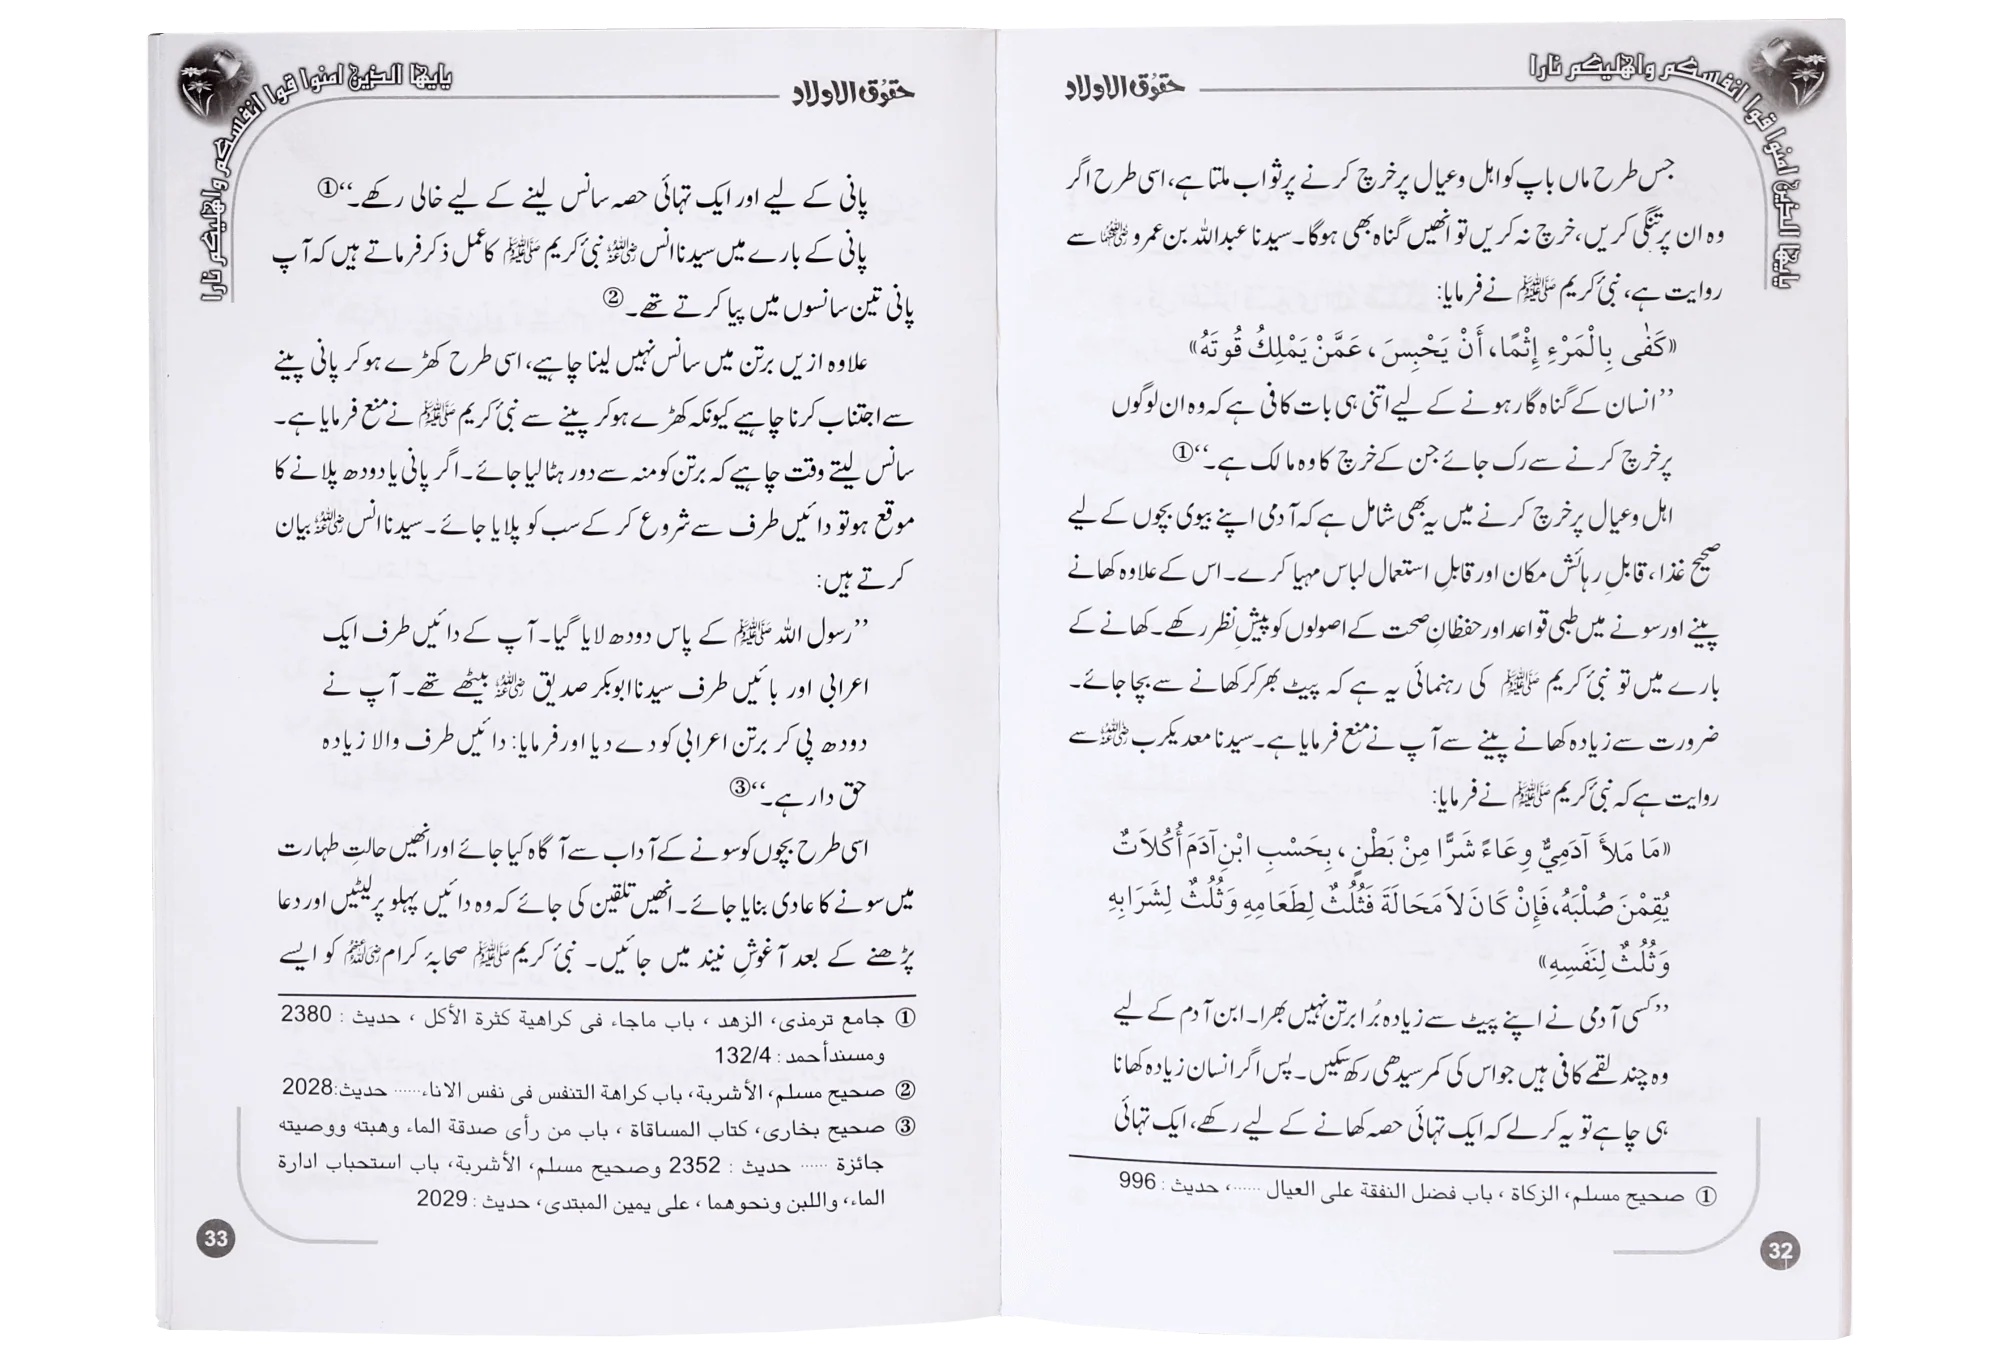 يايها الذين امنوا قوا انفسكم واهليكم نارا
حقوق الاولاد
جس طرح ماں باپ کو اہل و عیال پر خرچ کرنے پر ثواب ملتا ہے، اسی طرح اگر
وہ ان پر تنگی کریں، خرچ نہ کریں تو انھیں گناہ بھی ہوگا۔ سیدنا عبداللہ بن عمرو رضی اللہ عنہما سے
روایت ہے، نبیٔ کریم ﷺ نے فرمایا:
«كَفٰى بِالْمَرْءِ إِثْمًا، أَنْ يَحْبِسَ، عَمَّنْ يَمْلِكُ قُوتَهُ»
’’انسان کے گناہ گار ہونے کے لیے اتنی ہی بات کافی ہے کہ وہ ان لوگوں
پر خرچ کرنے سے رک جائے جن کے خرچ کا وہ مالک ہے۔‘‘①
اہل و عیال پر خرچ کرنے میں یہ بھی شامل ہے کہ آدمی اپنے بیوی بچوں کے لیے
صحیح غذا، قابلِ رہائش مکان اور قابلِ استعمال لباس مہیا کرے۔ اس کے علاوہ کھانے
پینے اور سونے میں طبی قواعد اور حفظانِ صحت کے اصولوں کو پیشِ نظر رکھے۔ کھانے کے
بارے میں تو نبیٔ کریم ﷺ کی رہنمائی یہ ہے کہ پیٹ بھر کر کھانے سے بچا جائے۔
ضرورت سے زیادہ کھانے پینے سے آپ نے منع فرمایا ہے۔ سیدنا معدیکرب رضی اللہ عنہ سے
روایت ہے کہ نبیٔ کریم ﷺ نے فرمایا:
«مَا مَلَأَ آدَمِيٌّ وِعَاءً شَرًّا مِنْ بَطْنٍ، بِحَسْبِ ابْنِ آدَمَ أُكُلَاتٌ
يُقِمْنَ صُلْبَهُ، فَإِنْ كَانَ لَا مَحَالَةَ فَثُلُثٌ لِطَعَامِهِ وَثُلُثٌ لِشَرَابِهِ
وَثُلُثٌ لِنَفَسِهِ»
’’کسی آدمی نے اپنے پیٹ سے زیادہ بُرا برتن نہیں بھرا۔ ابن آدم کے لیے
وہ چند لقمے کافی ہیں جو اس کی کمر سیدھی رکھ سکیں۔ پس اگر انسان زیادہ کھانا
ہی چاہے تو یہ کرلے کہ ایک تہائی حصہ کھانے کے لیے رکھے، ایک تہائی
① صحیح مسلم، الزکاة ، باب فضل النفقة علی العیال ......، حدیث : 996
32
يايها الذين امنوا قوا انفسكم واهليكم نارا
حقوق الاولاد
پانی کے لیے اور ایک تہائی حصہ سانس لینے کے لیے خالی رکھے۔‘‘①
پانی کے بارے میں سیدنا انس رضی اللہ عنہ نبیٔ کریم ﷺ کا عمل ذکر فرماتے ہیں کہ آپ
پانی تین سانسوں میں پیا کرتے تھے۔②
علاوہ ازیں برتن میں سانس نہیں لینا چاہیے، اسی طرح کھڑے ہوکر پانی پینے
سے اجتناب کرنا چاہیے کیونکہ کھڑے ہوکر پینے سے نبیٔ کریم ﷺ نے منع فرمایا ہے۔
سانس لیتے وقت چاہیے کہ برتن کو منہ سے دور ہٹا لیا جائے۔ اگر پانی یا دودھ پلانے کا
موقع ہو تو دائیں طرف سے شروع کر کے سب کو پلایا جائے۔ سیدنا انس رضی اللہ عنہ بیان
کرتے ہیں:
’’رسول اللہ ﷺ کے پاس دودھ لایا گیا۔ آپ کے دائیں طرف ایک
اعرابی اور بائیں طرف سیدنا ابوبکر صدیق رضی اللہ عنہ بیٹھے تھے۔ آپ نے
دودھ پی کر برتن اعرابی کو دے دیا اور فرمایا: دائیں طرف والا زیادہ
حق دار ہے۔‘‘③
اسی طرح بچوں کو سونے کے آداب سے آگاہ کیا جائے اور انھیں حالتِ طہارت
میں سونے کا عادی بنایا جائے۔ انھیں تلقین کی جائے کہ وہ دائیں پہلو پر لیٹیں اور دعا
پڑھنے کے بعد آغوشِ نیند میں جائیں۔ نبیٔ کریم ﷺ صحابۂ کرام رضی اللہ عنہم کو ایسے
① جامع ترمذی، الزهد ، باب ماجاء فی کراهیة کثرة الأکل ، حدیث : 2380
ومسندأحمد : 132/4
② صحیح مسلم، الأشربة، باب کراهة التنفس فی نفس الاناء...... حدیث:2028
③ صحیح بخاری، کتاب المساقاة ، باب من رأی صدقة الماء وهبته ووصیته
جائزة ...... حدیث : 2352 وصحیح مسلم، الأشربة، باب استحباب ادارة
الماء، واللبن ونحوهما ، علی یمین المبتدی، حدیث : 2029
33